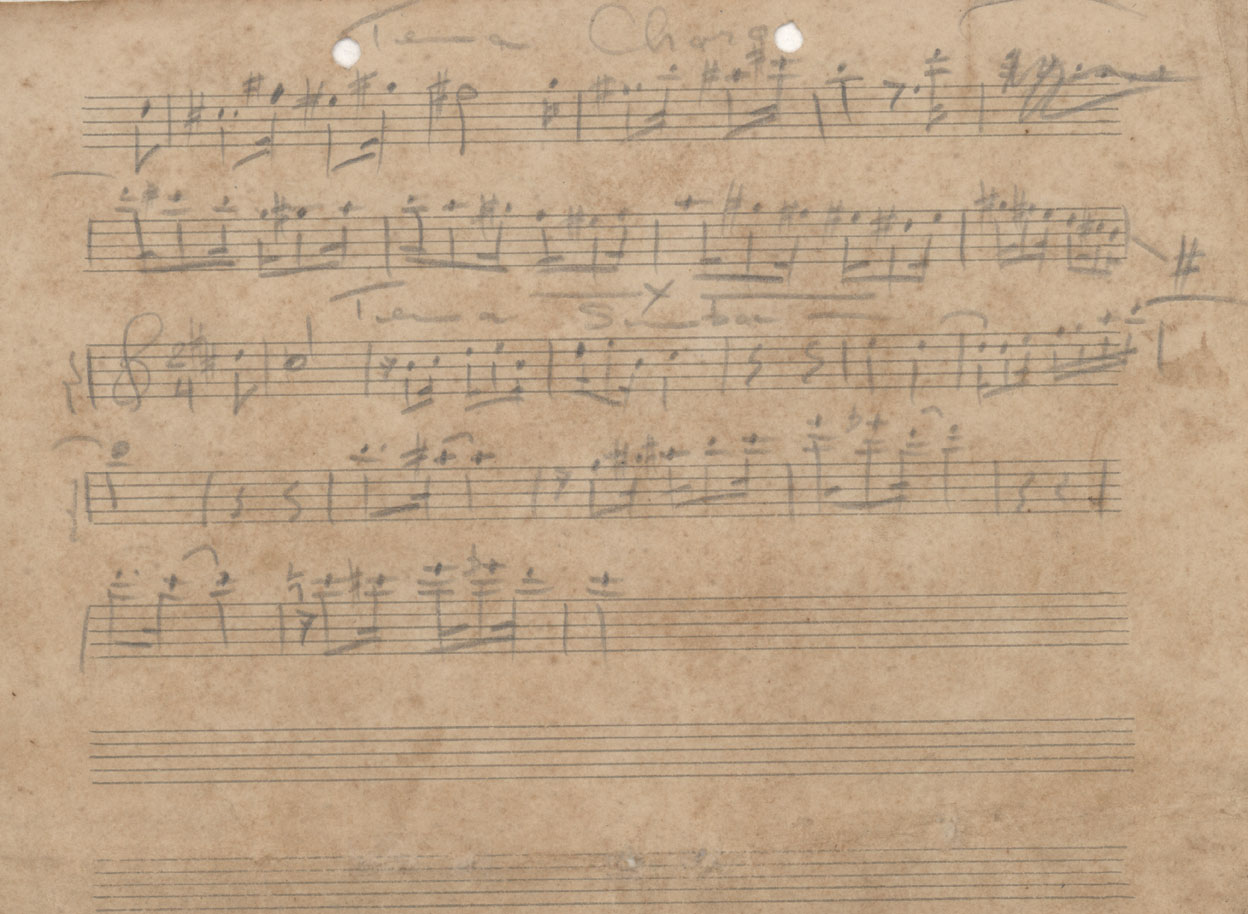 Tema Choro
Tema Samba
2
4